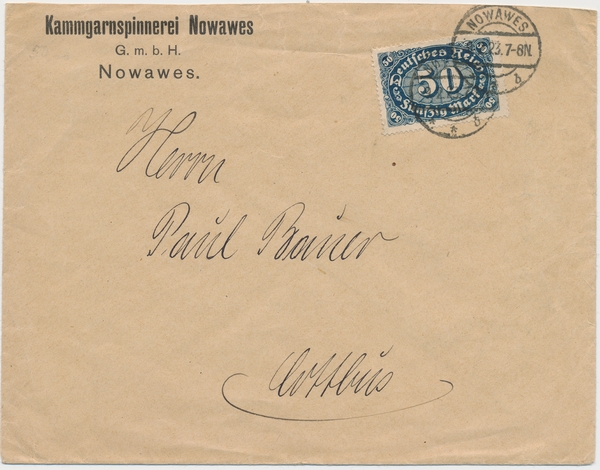 Kammgarnspinnerei Nowawes
G. m. b. H.
Nowawes.
NOWAWES
23.7-8N.
Deutsches Reich
50
Fünfzig Mark
50
50
50
Herrn
Paul Bauer
Cottbus